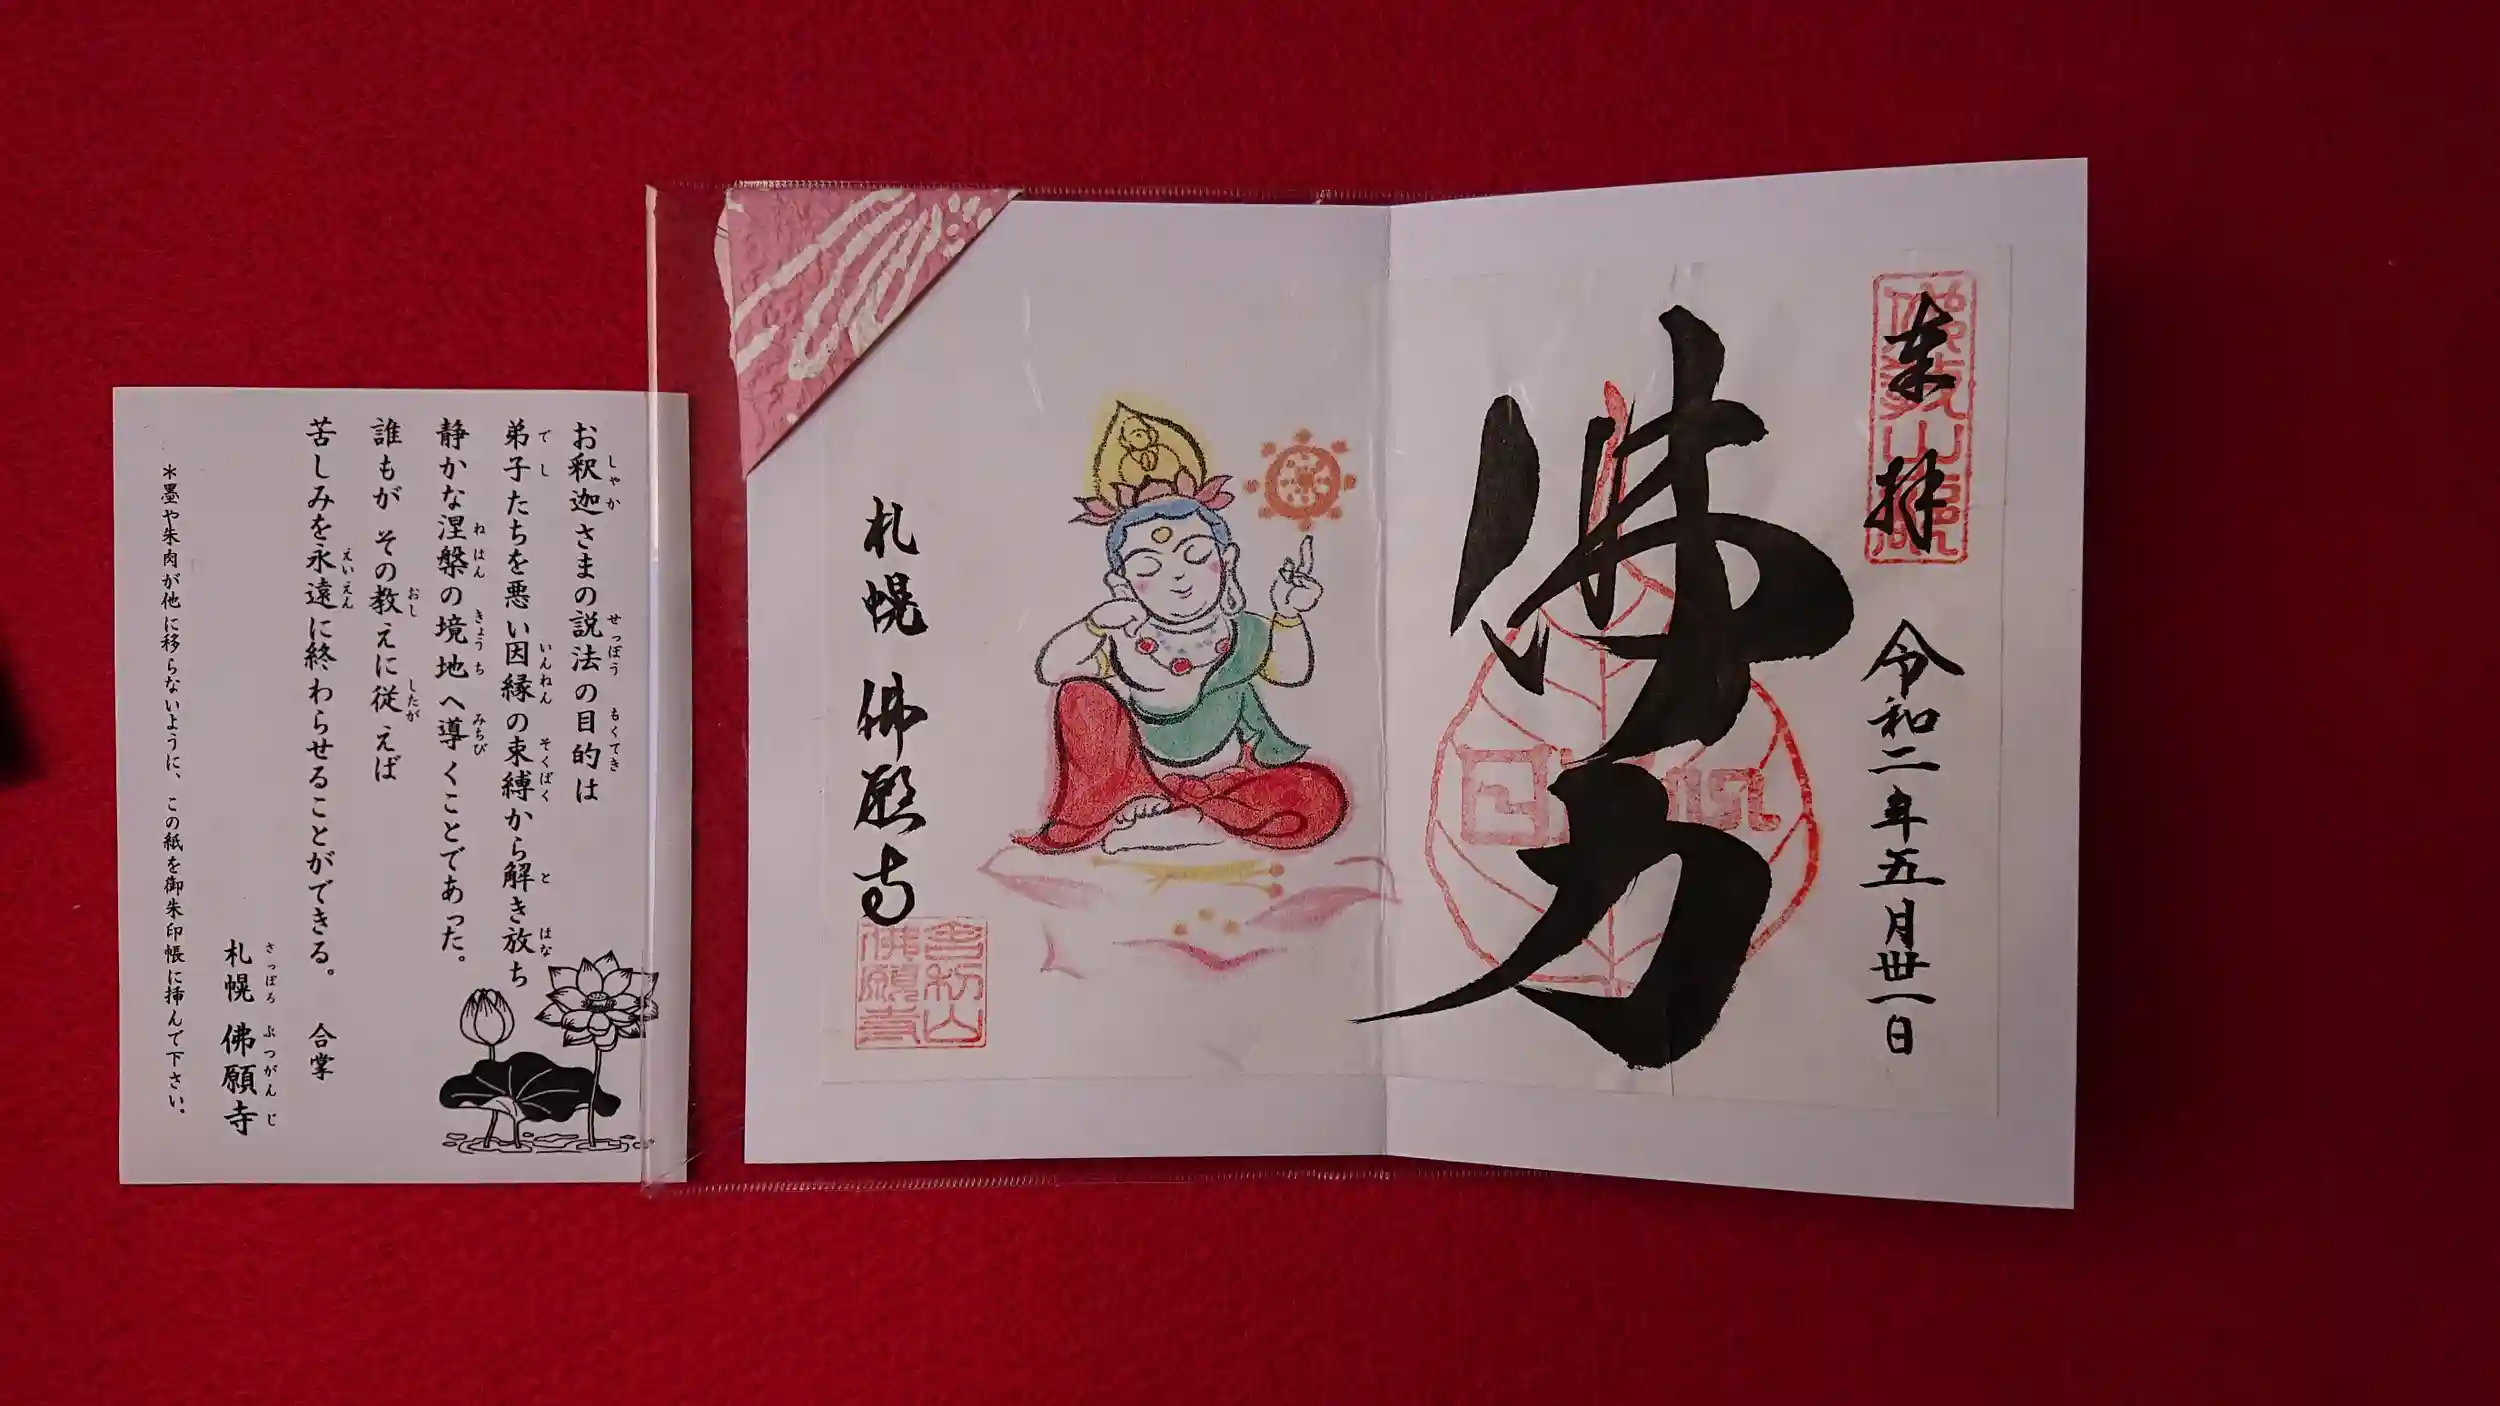 来拝
令和二年五月丗一日
佛力
札幌 佛願寺
お釈迦さまの説法の目的は
弟子たちを悪い因縁の束縛から解き放ち
静かな涅槃の境地へ導くことであった。
誰もが その教えに従えば
苦しみを永遠に終わらせることができる。 合掌
札幌 佛願寺
*墨や朱肉が他に移らないように、この紙を御朱印帳に挿んで下さい。